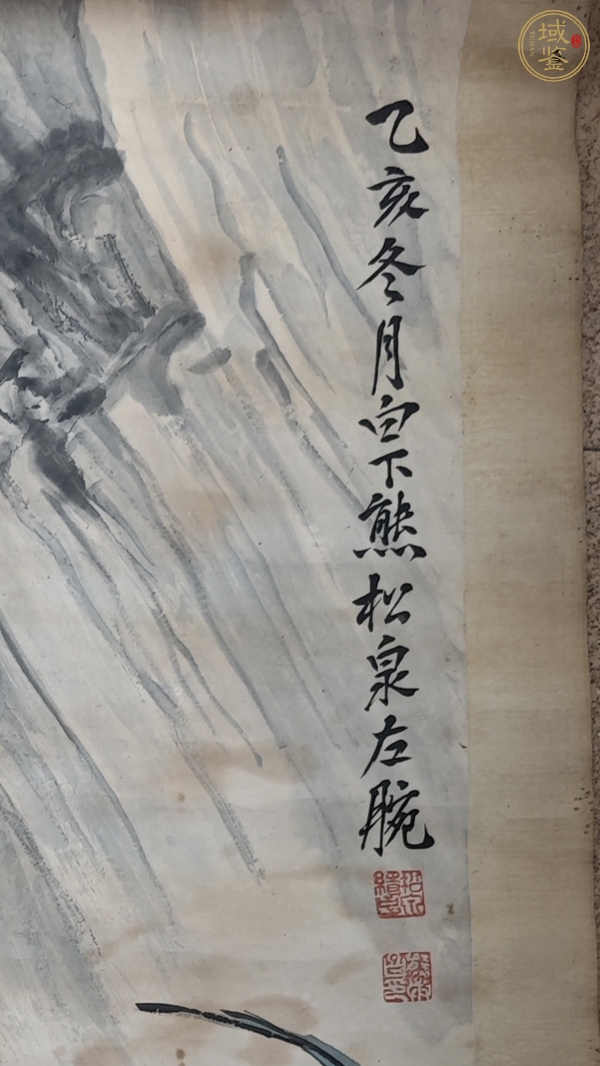 域鉴
YUJIAN
乙亥冬月白下熊松泉左腕